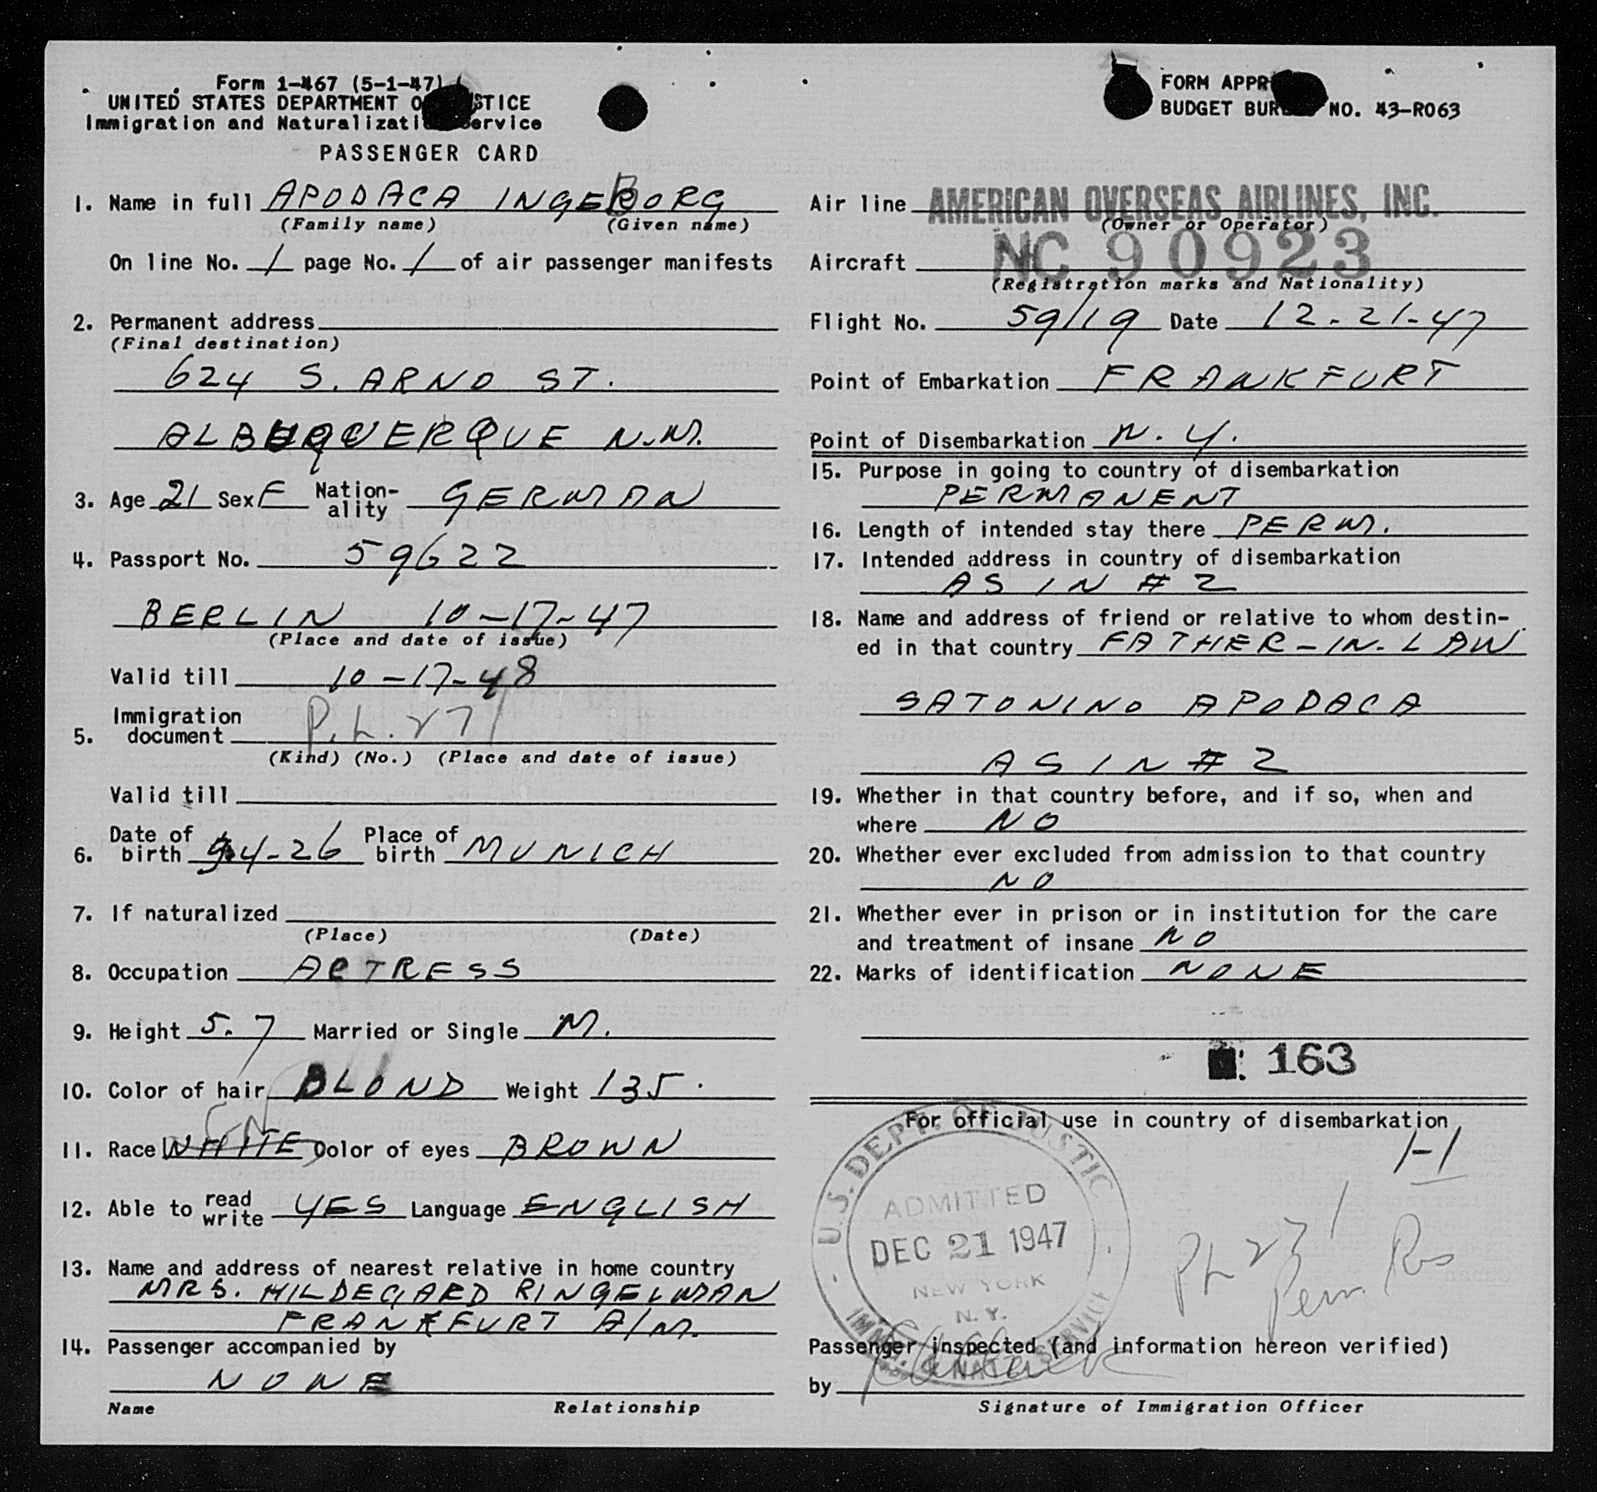 Form 1-467 (5-1-47)
UNITED STATES DEPARTMENT O STICE
Immigration and Naturalizati ervice
PASSENGER CARD
1. Name in full APODACA INGEBORG
(Family name) (Given name)
On line No. 1 page No. 1 of air passenger manifests
2. Permanent address
(Final destination)
624 S. ARNO ST.
ALBUQUERQUE N.M.
3. Age 21 Sex F Nation-ality GERMAN
4. Passport No. 59622
BERLIN 10-17-47
(Place and date of issue)
Valid till 10-17-48
5. Immigration document P.L. 271
(Kind) (No.) (Place and date of issue)
Valid till
6. Date of birth 9-4-26 Place of birth MUNICH
7. If naturalized
(Place) (Date)
8. Occupation ACTRESS
9. Height 5.7 Married or Single M.
10. Color of hair BLOND Weight 135.
11. Race WHITE Color of eyes BROWN
12. Able to read write YES Language ENGLISH
13. Name and address of nearest relative in home country
MRS. HILDEGARD RINGELMAN
FRANKFURT A/M.
14. Passenger accompanied by
NONE
Name Relationship
FORM APPR
BUDGET BUR NO. 43-R063
Air line AMERICAN OVERSEAS AIRLINES, INC.
(Owner or Operator)
Aircraft NC 90923
(Registration marks and Nationality)
Flight No. 59/19 Date 12-21-47
Point of Embarkation FRANKFURT
Point of Disembarkation N.Y.
15. Purpose in going to country of disembarkation
PERMANENT
16. Length of intended stay there PERM.
17. Intended address in country of disembarkation
AS IN # 2
18. Name and address of friend or relative to whom destin-
ed in that country FATHER-IN-LAW
SATONINO APODACA
AS IN # 2
19. Whether in that country before, and if so, when and
where NO
20. Whether ever excluded from admission to that country
NO
21. Whether ever in prison or in institution for the care
and treatment of insane NO
22. Marks of identification NONE
163
For official use in country of disembarkation
1-1
U.S. DEPT. OF JUSTIC
ADMITTED
DEC 21 1947
NEW YORK
N.Y.
IMM. & NAT. SERVICE
PL 271
Perm Res
Passenger inspected (and information hereon verified)
by
Signature of Immigration Officer